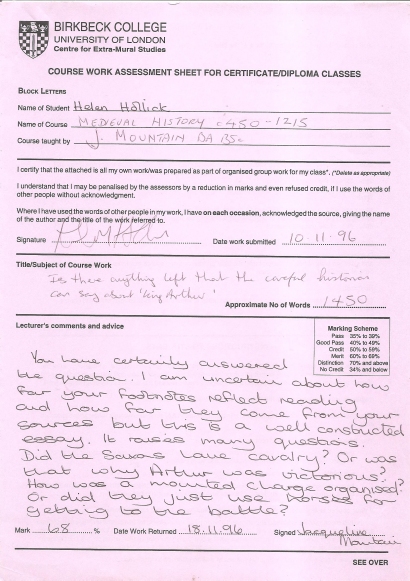 BIRKBECK COLLEGE
UNIVERSITY OF LONDON
Centre for Extra-Mural Studies
COURSE WORK ASSESSMENT SHEET FOR CERTIFICATE/DIPLOMA CLASSES
BLOCK LETTERS
Name of Student Helen Hollick
Name of Course MEDIEVAL HISTORY c450-1215
Course taught by J. MOUNTAIN BA BSc
I certify that the attached is all my own work/was prepared as part of organised group work for my class*. (*Delete as appropriate)
I understand that I may be penalised by the assessors by a reduction in marks and even refused credit, if I use the words of
other people without acknowledgment.
Where I have used the words of other people in my work, I have on each occasion, acknowledged the source, giving the name
of the author and the title of the work referred to.
Signature Date work submitted 10-11-96
Title/Subject of Course Work
Is there anything left that the careful historian
can say about 'King Arthur'
Approximate No of Words 1450
Lecturer's comments and advice
Marking Scheme
Pass 35% to 39%
Good Pass 40% to 49%
Credit 50% to 59%
Merit 60% to 69%
Distinction 70% and above
No Credit 34% and below
You have certainly answered
the question. I am uncertain about how
far your footnotes reflect reading
and how far they come from your
sources but this is a well constructed
essay. It raises many questions.
Did the Saxons have cavalry? Or was
that why Arthur was victorious?
How was a mounted charge organised?
Or did they just use horses for
getting to the battle?
Mark 68 % Date Work Returned 18.11.96 Signed Jacqueline
Mountain
SEE OVER